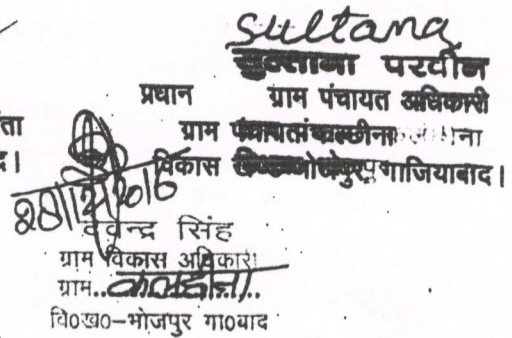 sultana
सुल्ताना परवीन
प्रधान ग्राम पंचायत अधिकारी
ता ग्राम पंचायत कलछीना ना
द। विकास भोजपुर गाजियाबाद।
सिंह
ग्राम विकास अधिकारी
ग्राम..कलछीना..
वि०ख०-भोजपुर गा०बाद